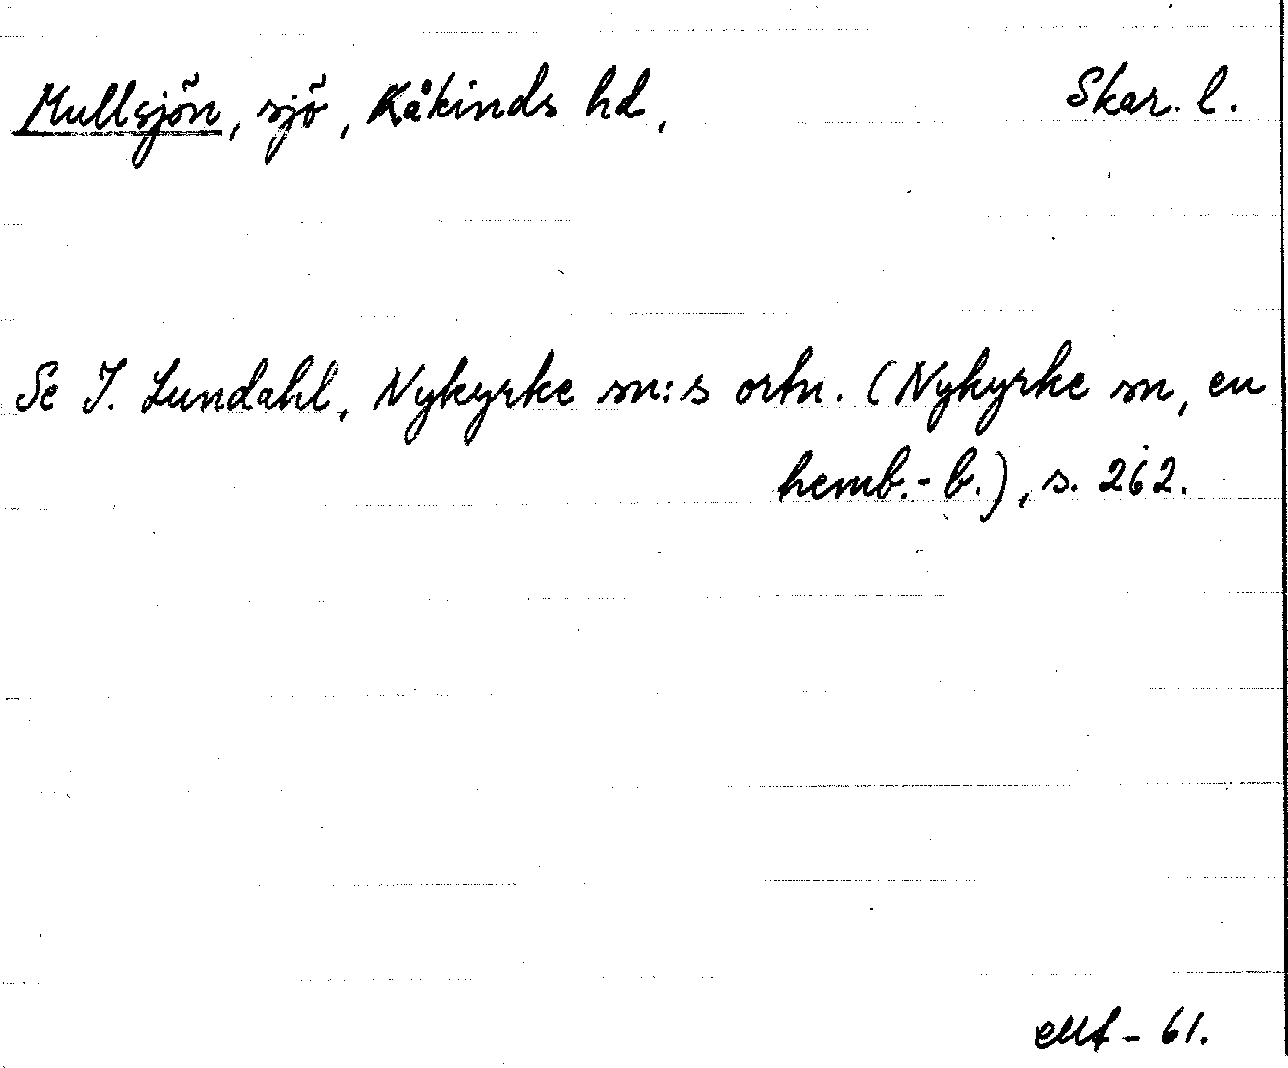 Mullsjön, sjö, Kåkinds hd, Skar. l.
Se I. Lundahl, Nykyrke sn:s ortn. (Nykyrke sn, en
hemb.-b.), s. 262.
-61.